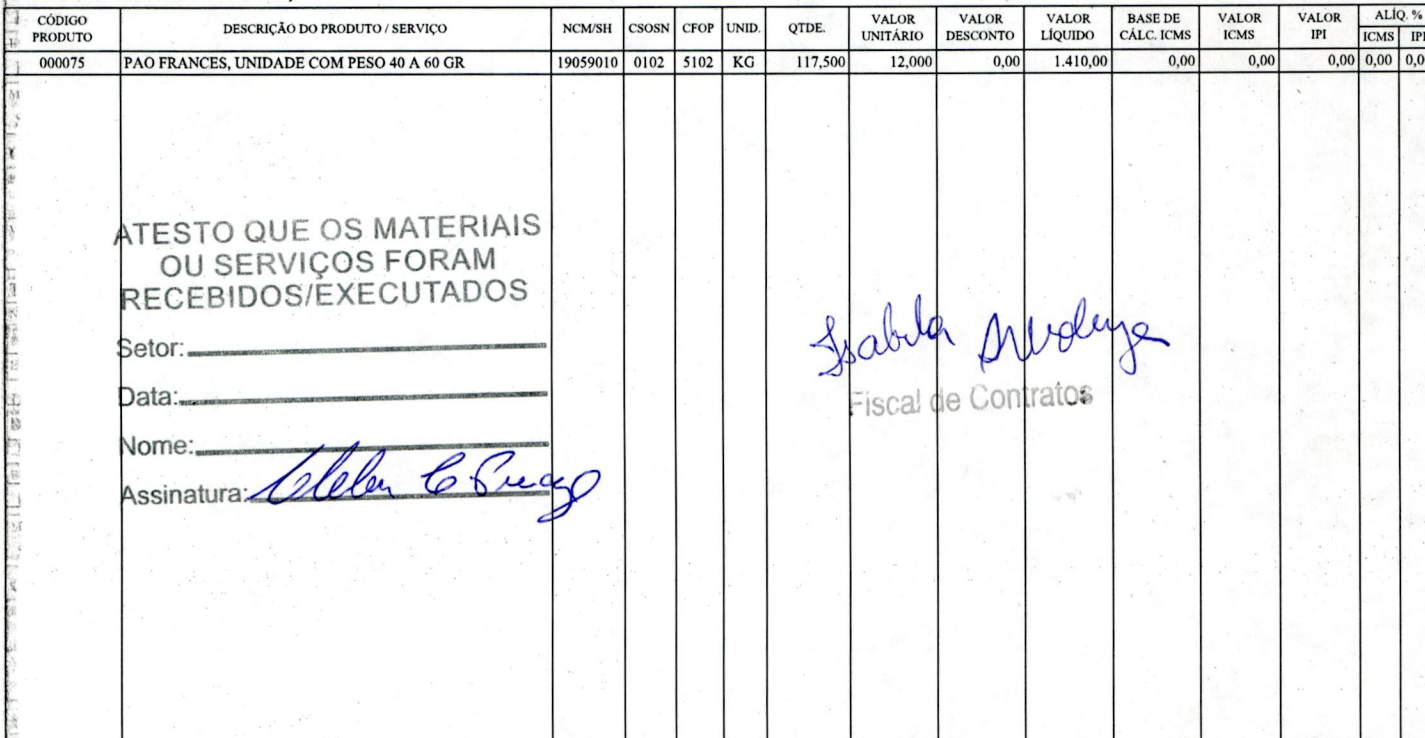 CÓDIGO PRODUTO DESCRIÇÃO DO PRODUTO / SERVIÇO NCM/SH CSOSN CFOP UNID. QTDE. VALOR UNITÁRIO VALOR DESCONTO VALOR LÍQUIDO BASE DE CÁLC. ICMS VALOR ICMS VALOR IPI ALÍQ. % ICMS IPI
000075 PAO FRANCES, UNIDADE COM PESO 40 A 60 GR 19059010 0102 5102 KG 117,500 12,000 0,00 1.410,00 0,00 0,00 0,00 0,00 0,0
ATESTO QUE OS MATERIAIS
OU SERVIÇOS FORAM
RECEBIDOS/EXECUTADOS
Setor:
Data:
Nome:
Assinatura:
Isabela
Fiscal de Contratos